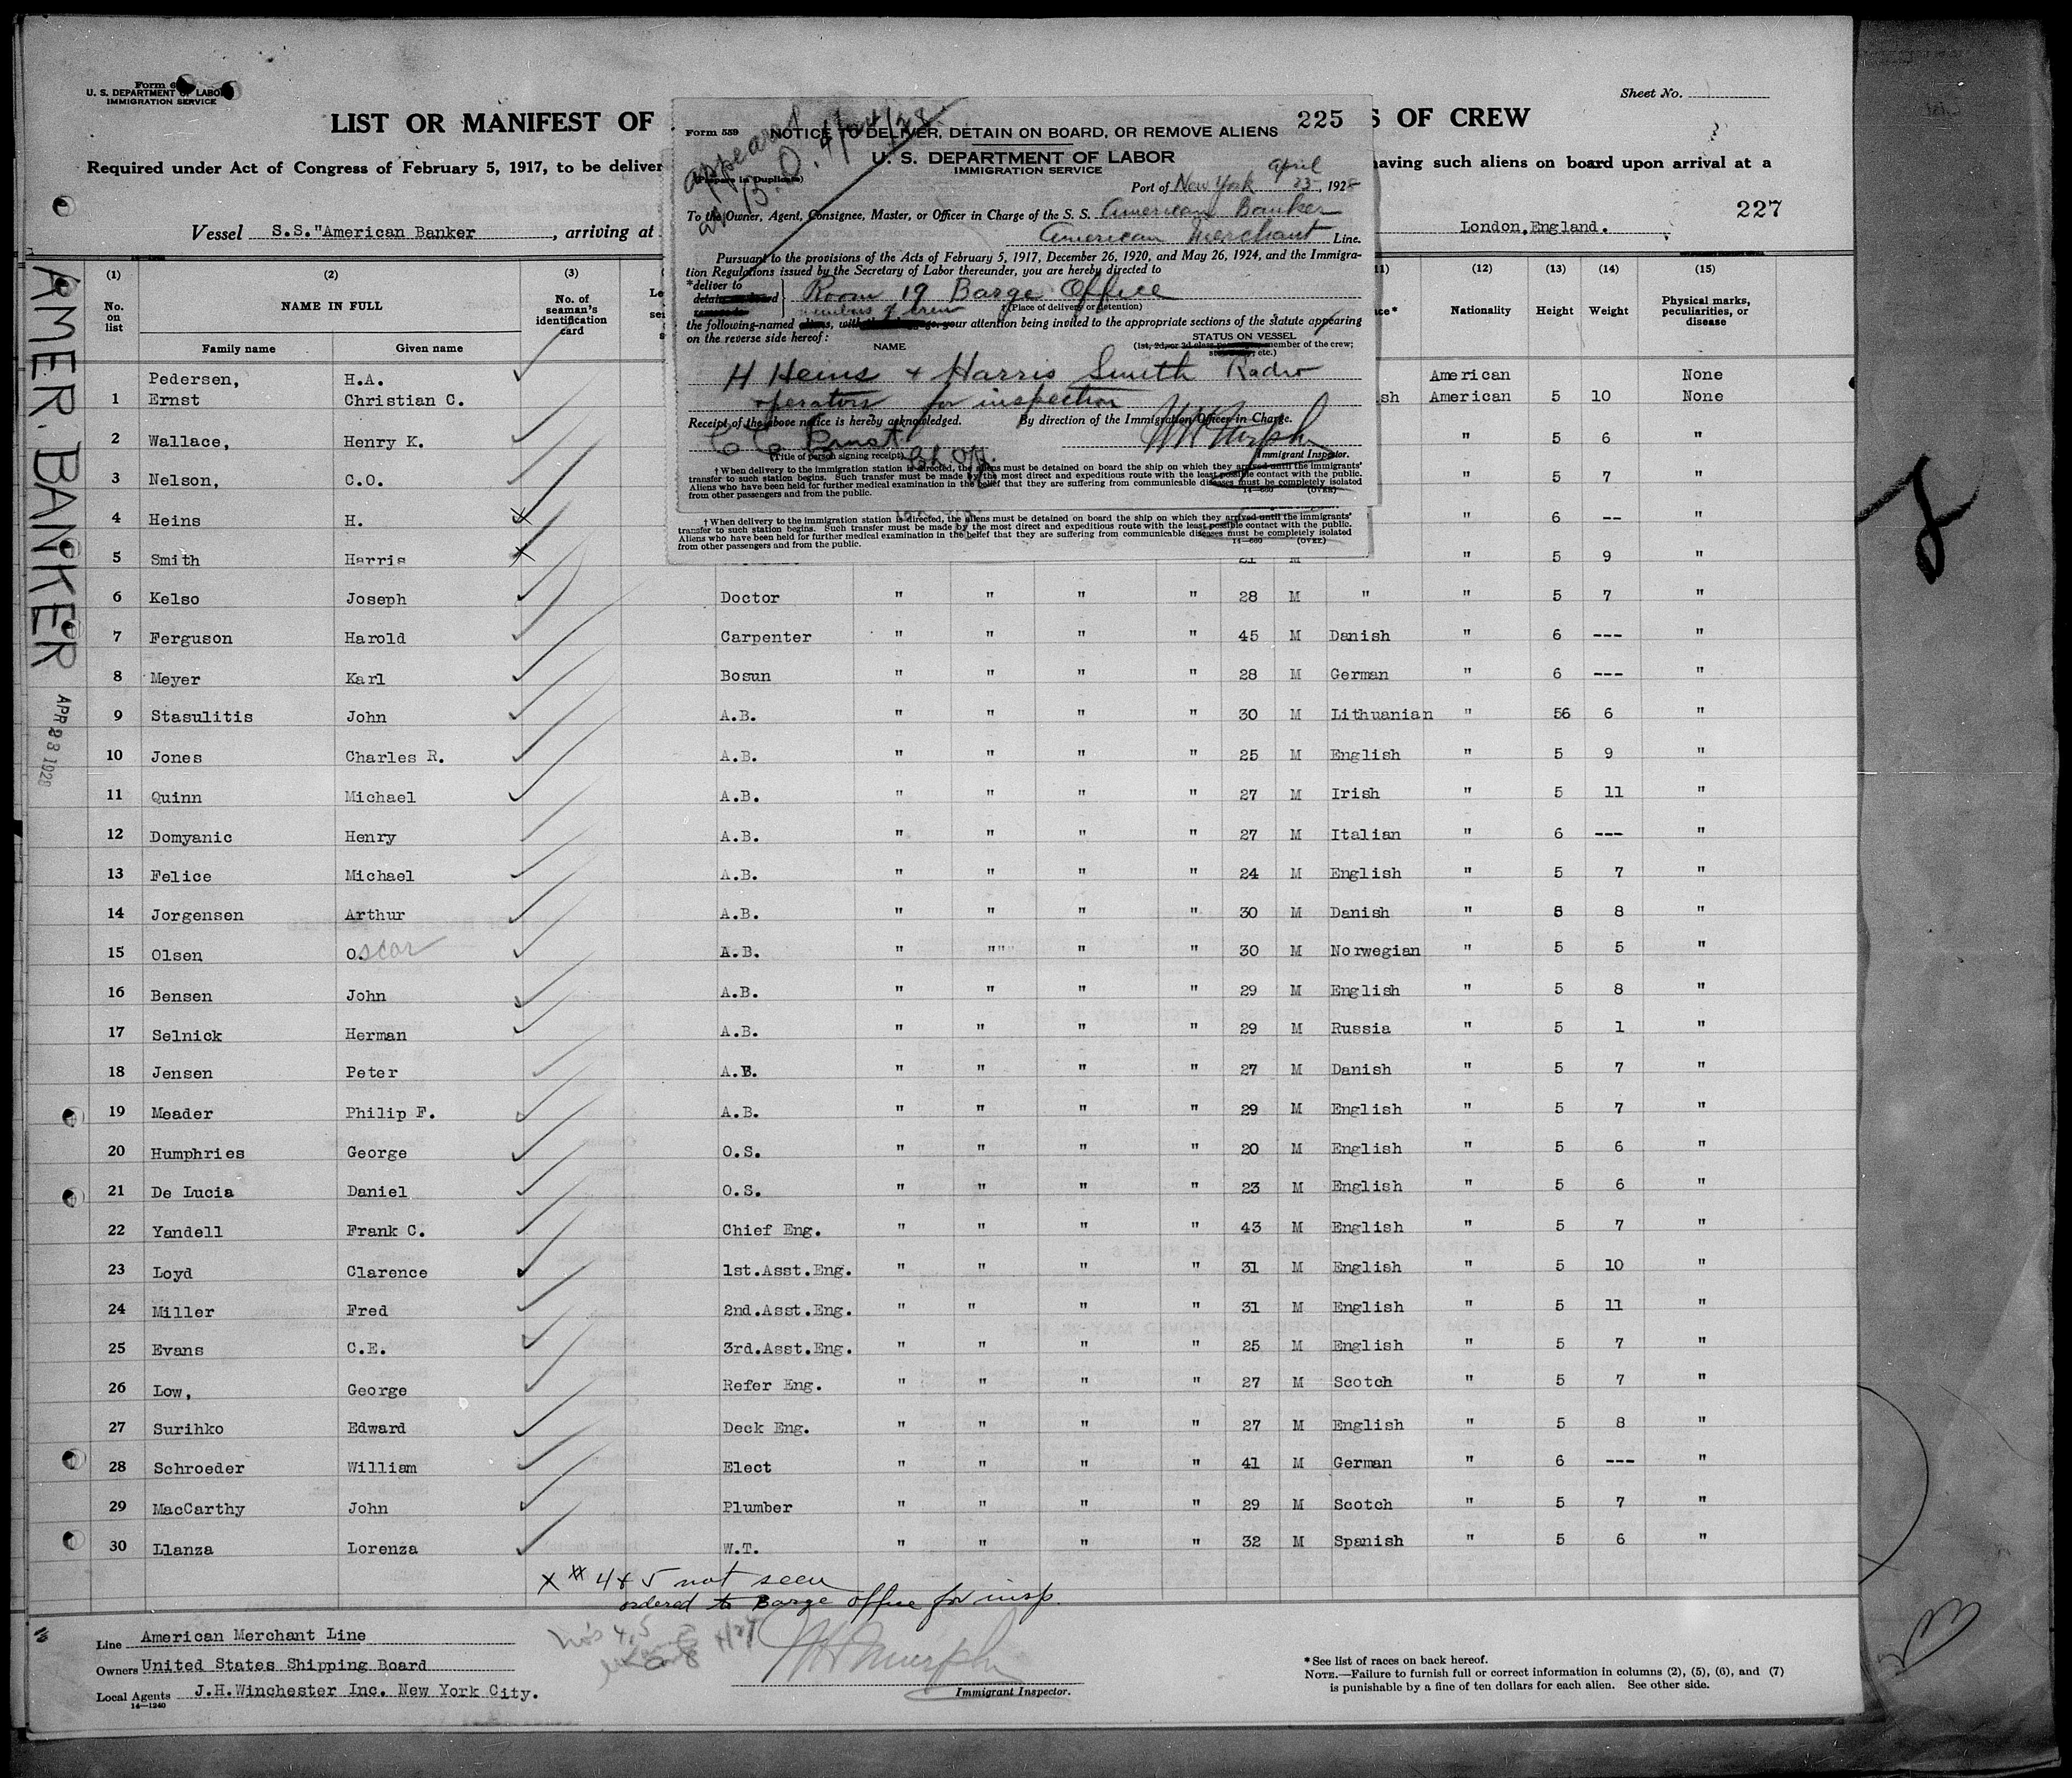 Form 6
U. S. DEPARTMENT OF LABOR
IMMIGRATION SERVICE
Sheet No.
LIST OR MANIFEST OF
S OF CREW
Required under Act of Congress of February 5, 1917, to be deliver
having such aliens on board upon arrival at a
227
Vessel S.S."American Banker , arriving at
London,England.
Form 559 NOTICE TO DELIVER, DETAIN ON BOARD, OR REMOVE ALIENS 225
appeared
at B.O. 4/24/28.
U. S. DEPARTMENT OF LABOR
(Prepare in Duplicate) IMMIGRATION SERVICE
Port of New York april 23, 1928
To the Owner, Agent, Consignee, Master, or Officer in Charge of the S. S. American Banker
American Merchant Line.
Pursuant to the provisions of the Acts of February 5, 1917, December 26, 1920, and May 26, 1924, and the Immigra-
tion Regulations issued by the Secretary of Labor thereunder, you are hereby directed to
*deliver to
detain on board
remove to
Room 19 Barge Office
members of crew (Place of delivery or detention)
the following-named aliens, with your attention being invited to the appropriate sections of the statute appearing
on the reverse side hereof:
NAME
STATUS ON VESSEL
(1st, 2d, or 3d class passenger, member of the crew;
etc.)
H Heins + Harris Smith Radio
operators for inspection
Receipt of the above notice is hereby acknowledged. By direction of the Immigration Officer in Charge.
C C Ernst W H Murphy
(Title of person signing receipt) Ch. Off. Immigrant Inspector.
† When delivery to the immigration station is directed, the aliens must be detained on board the ship on which they arrived until the immigrants'
transfer to such station begins. Such transfer must be made by the most direct and expeditious route with the least possible contact with the public.
Aliens who have been held for further medical examination in the belief that they are suffering from communicable diseases must be completely isolated
from other passengers and from the public. 14—660 (OVER)
† When delivery to the immigration station is directed, the aliens must be detained on board the ship on which they arrived until the immigrants'
transfer to such station begins. Such transfer must be made by the most direct and expeditious route with the least possible contact with the public.
Aliens who have been held for further medical examination in the belief that they are suffering from communicable diseases must be completely isolated
from other passengers and from the public. 14—660 (OVER)
AMER. BANKER
APR 23 1928
(1) (2) (3) 11) (12) (13) (14) (15)
No. on list NAME IN FULL No. of seaman's identification card Nationality Height Weight Physical marks, peculiarities, or disease
Family name Given name
Pedersen, H.A. American None
1 Ernst Christian C. sh American 5 10 None
2 Wallace, Henry K. " 5 6 "
3 Nelson, C.O. " 5 7 "
4 Heins H. " 6 -- "
5 Smith Harris 21 M " 5 9 "
6 Kelso Joseph Doctor " " " " 28 M " " 5 7 "
7 Ferguson Harold Carpenter " " " " 45 M Danish " 6 --- "
8 Meyer Karl Bosun " " " " 28 M German " 6 --- "
9 Stasulitis John A.B. " " " " 30 M Lithuanian " 56 6 "
10 Jones Charles R. A.B. " " " " 25 M English " 5 9 "
11 Quinn Michael A.B. " " " " 27 M Irish " 5 11 "
12 Domyanic Henry A.B. " " " " 27 M Italian " 6 --- "
13 Felice Michael A.B. " " " " 24 M English " 5 7 "
14 Jorgensen Arthur A.B. " " " " 30 M Danish " 5 8 "
15 Olsen Oscar A.B. " """ " " 30 M Norwegian " 5 5 "
16 Bensen John A.B. " " " " 29 M English " 5 8 "
17 Selnick Herman A.B. " " " " 29 M Russia " 5 1 "
18 Jensen Peter A.B. " " " " 27 M Danish " 5 7 "
19 Meader Philip F. A.B. " " " " 29 M English " 5 7 "
20 Humphries George O.S. " " " " 20 M English " 5 6 "
21 De Lucia Daniel O.S. " " " " 23 M English " 5 6 "
22 Yandell Frank C. Chief Eng. " " " " 43 M English " 5 7 "
23 Loyd Clarence 1st.Asst.Eng. " " " " 31 M English " 5 10 "
24 Miller Fred 2nd.Asst.Eng. " " " " 31 M English " 5 11 "
25 Evans C.E. 3rd.Asst.Eng. " " " " 25 M English " 5 7 "
26 Low, George Refer Eng. " " " " 27 M Scotch " 5 7 "
27 Surihko Edward Deck Eng. " " " " 27 M English " 5 8 "
28 Schroeder William Elect " " " " 41 M German " 6 --- "
29 MacCarthy John Plumber " " " " 29 M Scotch " 5 7 "
30 Llanza Lorenza W.T. " " " " 32 M Spanish " 5 6 "
X # 4 + 5 not seen
ordered to Barge office for insp.
Line American Merchant Line
Owners United States Shipping Board
Local Agents J.H.Winchester Inc. New York City.
14—1240
No's 4,5
W H Murphy
Immigrant Inspector.
* See list of races on back hereof.
NOTE.—Failure to furnish full or correct information in columns (2), (5), (6), and (7)
is punishable by a fine of ten dollars for each alien. See other side.